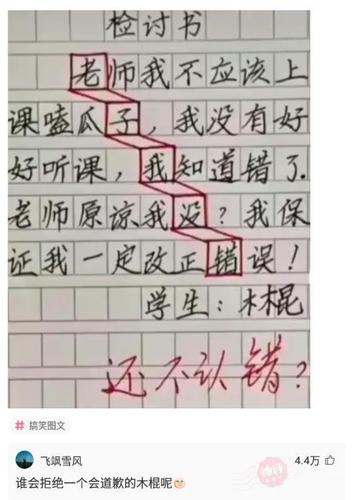 检讨书
老师我不应该上
课嗑瓜子，我没有好
好听课，我知道错了.
老师原谅我没？我保
证我一定改正错误！
学生：木棍
还不认错？
# 搞笑图文
飞飒雪风
4.4万
谁会拒绝一个会道歉的木棍呢